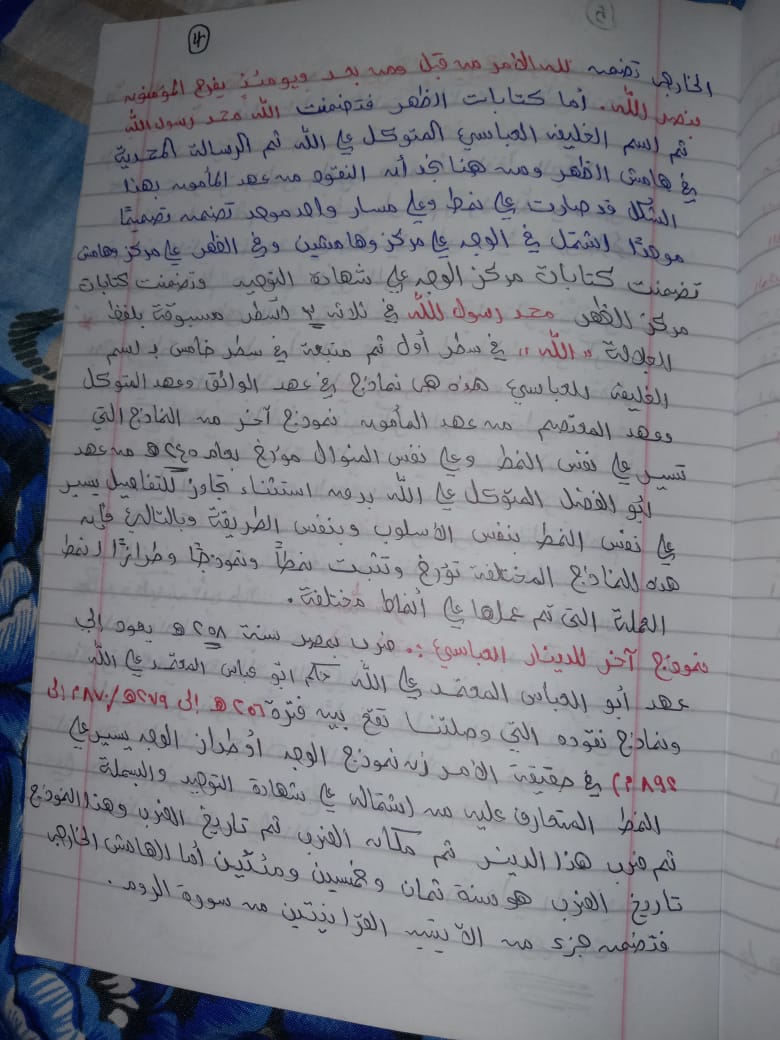 ٤
الخارجي تضمنه لله الأمر من قبل ومن بعد ويومئذ يفرح المؤمنون
بنصر الله. أما كتابات الظهر فتضمنت الله محمد رسول الله
ثم اسم الخليفة العباسي المتوكل على الله ثم الرسالة المحمدية
في هامش الظهر ومن هنا نجد أن النقود من عهد المأمون بهذا
الشكل قد صارت على نمط وعلى مسار واحد موحد تضمن تصميمًا
موحدًا اشتمل في الوجه على مركز وهامشين وفي الظهر على مركز وهامش
تضمنت كتابات مركز الوجه على شهادة التوحيد وتضمنت كتابات
مركز الظهر محمد رسول الله في ثلاث ٣ أسطر مسبوقة بلفظ
الجلالة "الله" في سطر أول ثم متبعة في سطر خامس بـ اسم
الخليفة العباسي هذه هي نماذج في عهد الواثق وعهد المتوكل
وعهد المعتصم من عهد المأمون نموذج آخر من النماذج التي
تسير على نفس النمط وعلى نفس المنوال مؤرخ بعام ٢٤٥ هـ من عهد
أبو الفضل المتوكل على الله بدون استثناء تجاوز للتفاصيل يسير
على نفس النمط بنفس الأسلوب وبنفس الطريقة وبالتالي فإن
هذه النماذج المختلفة تؤرخ وتثبت نمطًا ونموذجًا وطرازًا لنمط
العملة التي تم عملها على أنماط مختلفة.
نموذج آخر للدينار العباسي :. ضرب بمصر سنة ٢٥٨ هـ يعود إلى
عهد أبو العباس المعتمد على الله حكم ابو عباس المعتمد على الله
ونماذج نقوده التي وصلتنا تقع بين فترة ٢٥٦ هـ إلى ٢٧٩ هـ / ٨٧٠ م إلى
٨٩٢ م) في حقيقة الأمر إن نموذج الوجه أو طراز الوجه يسير على
النمط المتعارف عليه من اشتماله على شهادة التوحيد والبسملة
ثم ضرب هذا الدينر ثم مكان الضرب ثم تاريخ الضرب وهذا النموذج
تاريخ الضرب هو سنة ثمان وخمسين ومئتين أما الهامش الخارجي
فتضمن جزء من الآيتين القرآنيتين من سورة الروم.